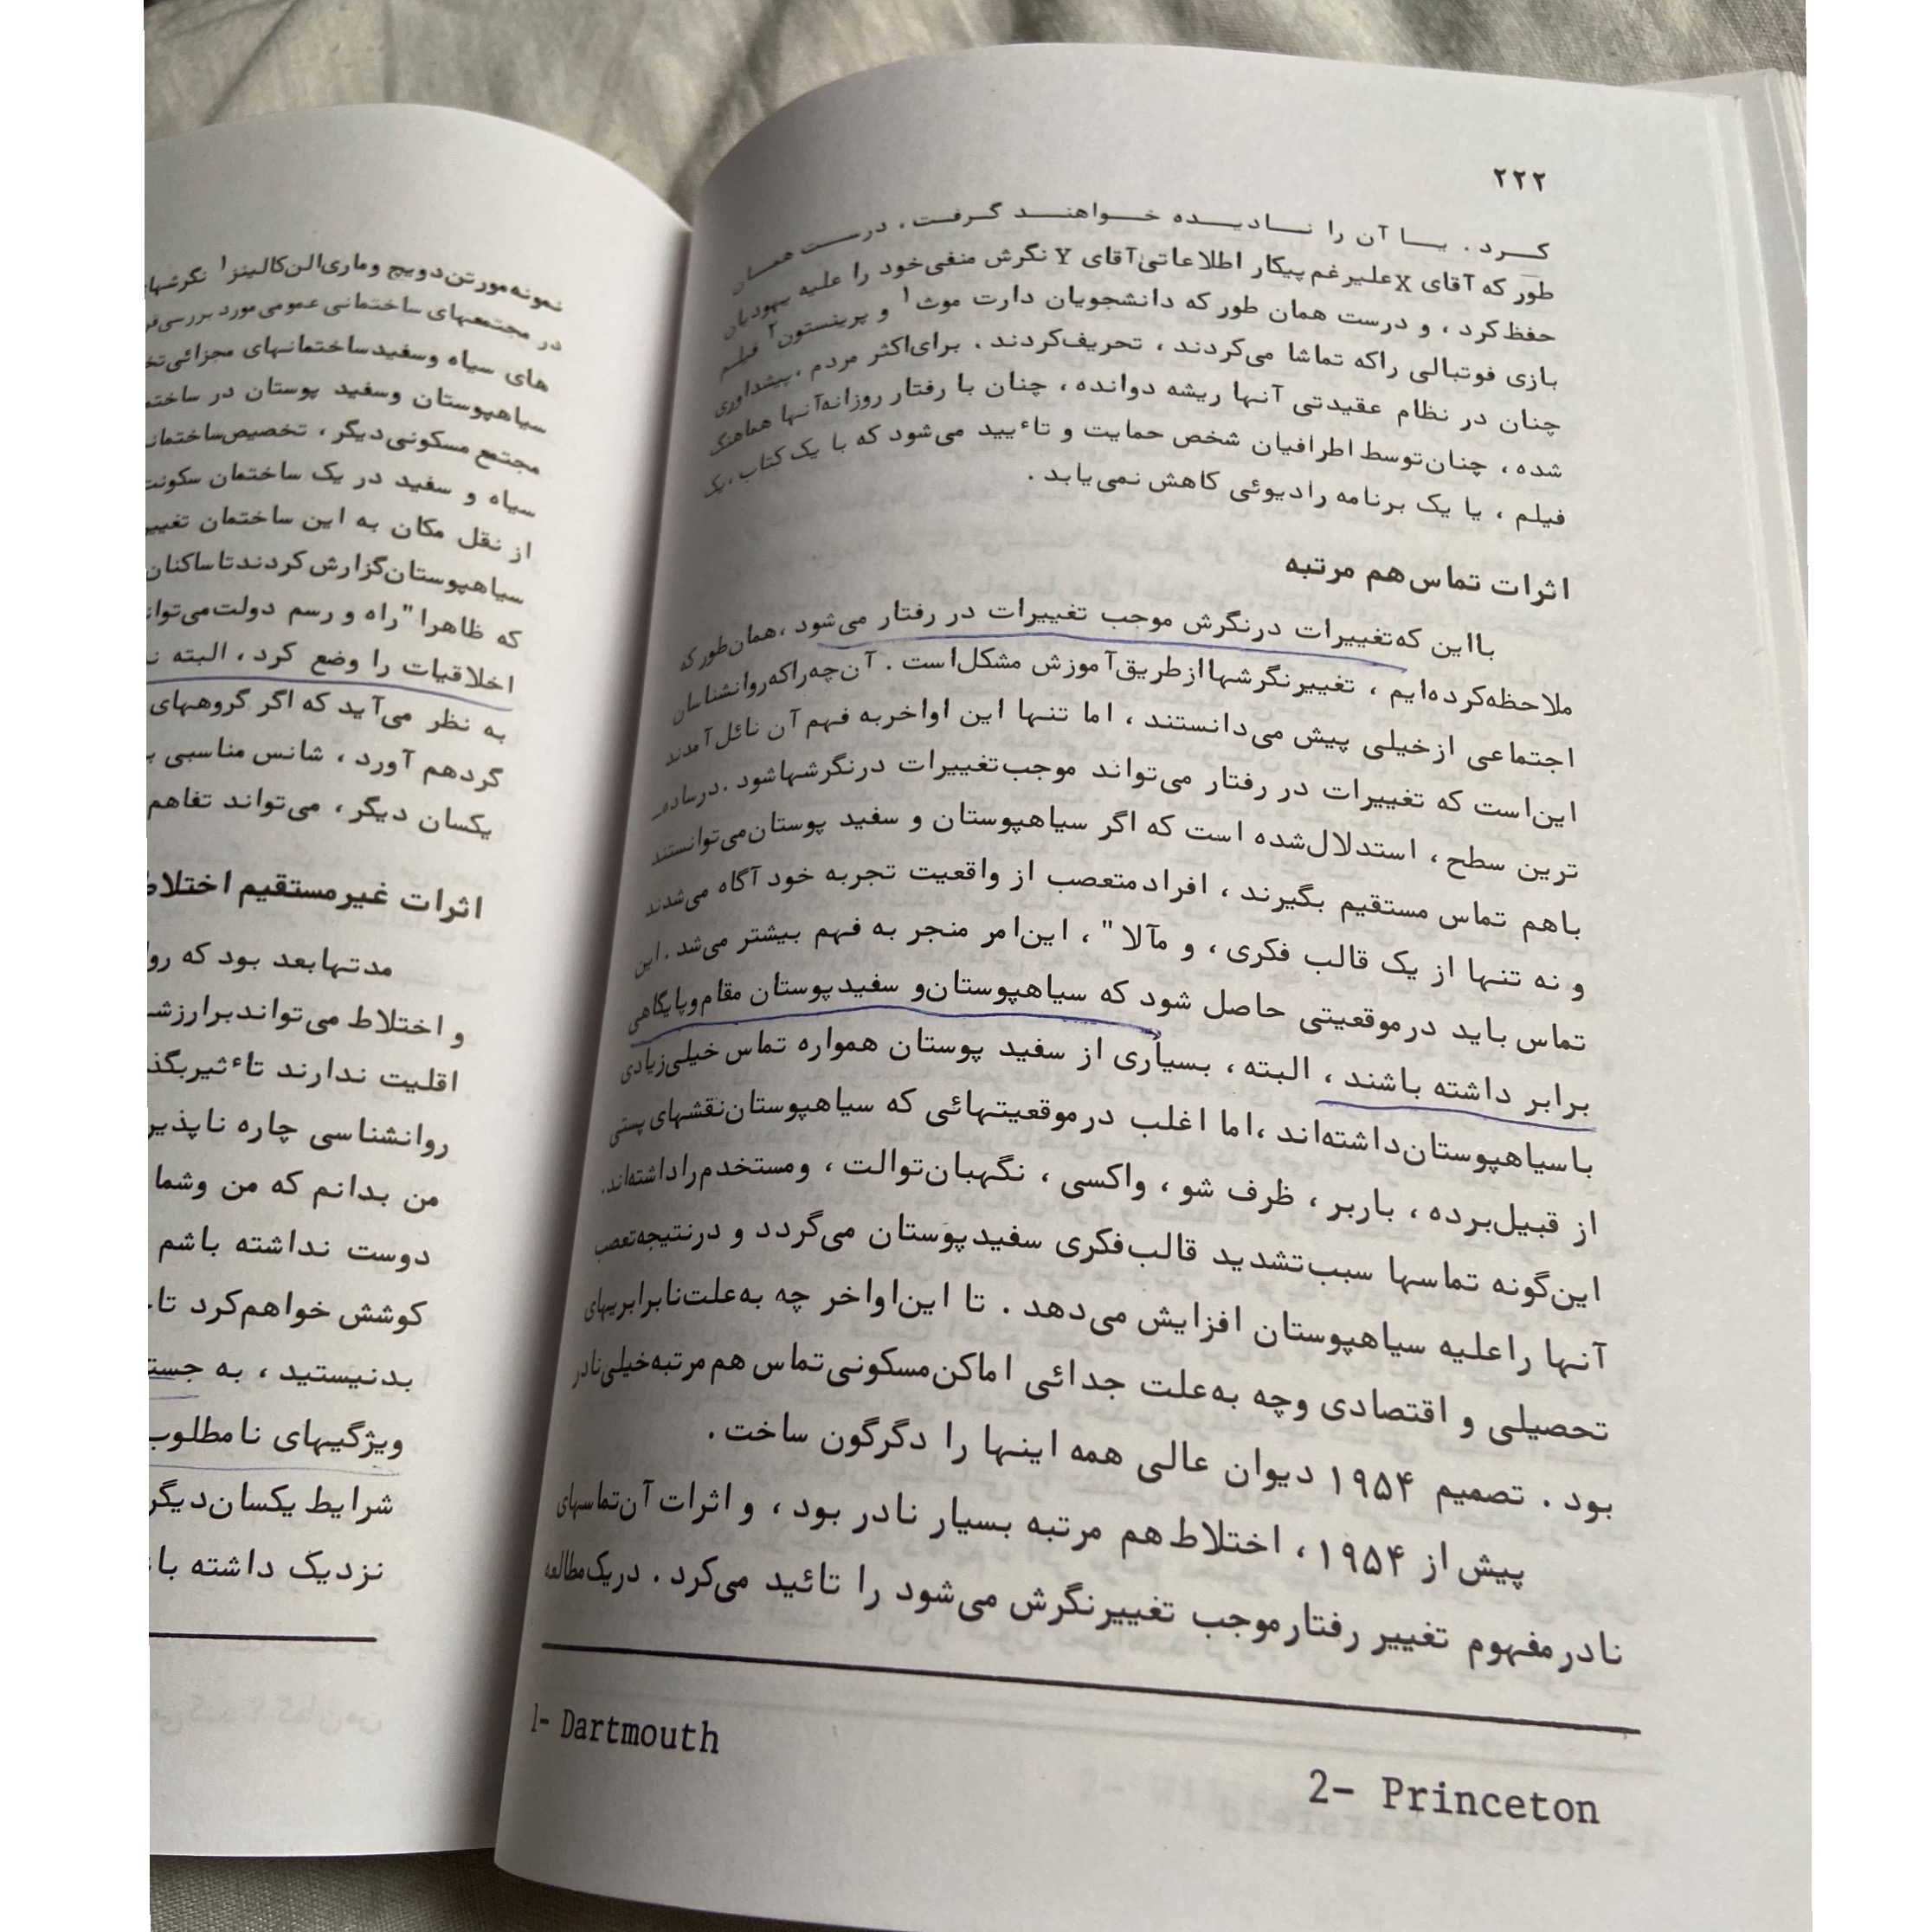 ۲۲۲
کرد. یا آن را نادیده خواهند گرفت، درست همان
طور که آقای X علیرغم پیکار اطلاعاتی آقای Y نگرش منفی خود را علیه یهودیان
حفظ کرد، و درست همان طور که دانشجویان دارت موث۱ و پرینستون۲ فیلم
بازی فوتبالی را که تماشا می‌کردند، تحریف کردند. برای اکثر مردم، پیشداوری
چنان در نظام عقیدتی آنها ریشه دوانده، چنان با رفتار روزانه آنها هماهنگ
شده، چنان توسط اطرافیان شخص حمایت و تأیید می‌شود که با یک کتاب، یک
فیلم، یا یک برنامه رادیوئی کاهش نمی‌یابد.
اثرات تماس هم مرتبه
با این که تغییرات در نگرش موجب تغییرات در رفتار می‌شود، همان طور که
ملاحظه کرده‌ایم، تغییر نگرشها از طریق آموزش مشکل است. آن چه را که روانشناسان
اجتماعی از خیلی پیش می‌دانستند، اما تنها این اواخر به فهم آن نائل آمدند
این است که تغییرات در رفتار می‌تواند موجب تغییرات در نگرشها شود. در ساده‌ـ
ترین سطح، استدلال شده است که اگر سیاهپوستان و سفید پوستان می‌توانستند
باهم تماس مستقیم بگیرند، افراد متعصب از واقعیت تجربه خود آگاه می‌شدند
و نه تنها از یک قالب فکری، و مآلا"، این امر منجر به فهم بیشتر می‌شد. این
تماس باید در موقعیتی حاصل شود که سیاهپوستان و سفید پوستان مقام و پایگاهی
برابر داشته باشند، البته، بسیاری از سفید پوستان همواره تماس خیلی زیادی
با سیاهپوستان داشته‌اند، اما اغلب در موقعیتهائی که سیاهپوستان نقشهای پستی
از قبیل برده، باربر، ظرف شو، واکسی، نگهبان توالت، و مستخدم را داشته‌اند.
این گونه تماسها سبب تشدید قالب فکری سفید پوستان می‌گردد و در نتیجه تعصب
آنها را علیه سیاهپوستان افزایش می‌دهد. تا این اواخر چه به علت نابرابریهای
تحصیلی و اقتصادی و چه به علت جدائی اماکن مسکونی تماس هم مرتبه خیلی نادر
بود. تصمیم ۱۹۵۴ دیوان عالی همه اینها را دگرگون ساخت.
پیش از ۱۹۵۴، اختلاط هم مرتبه بسیار نادر بود، و اثرات آن تماسهای
نادر مفهوم تغییر رفتار موجب تغییر نگرش می‌شود را تائید می‌کرد. در یک مطالعه
1- Dartmouth
2- Princeton
نمونه مورتن دویچ و ماری الن کالینز۱
در مجتمعهای ساختمانی عمومی مورد
های سیاه و سفید ساختمانهای مجزائی
سیاهپوستان و سفید پوستان در
مجتمع مسکونی دیگر، تخصیص
سیاه و سفید در یک ساختمان
از نقل مکان به این ساختمان
سیاهپوستان گزارش کردند تا ساکنان
که ظاهرا" راه و رسم دولت
اخلاقیات را وضع کرد، البته
به نظر می‌آید که اگر گروههای
گردهم آورد، شانس مناسبی
یکسان دیگر، می‌تواند تفاهم
اثرات غیر مستقیم
مدتها بعد بود که
و اختلاط می‌تواند بر
اقلیت ندارند
روانشناسی چاره
من بدانم که من و شما
دوست نداشته باشم
کوشش خواهم کرد
بدنیستید، به
ویژگیهای
شرایط یکسان دیگر
نزدیک داشته